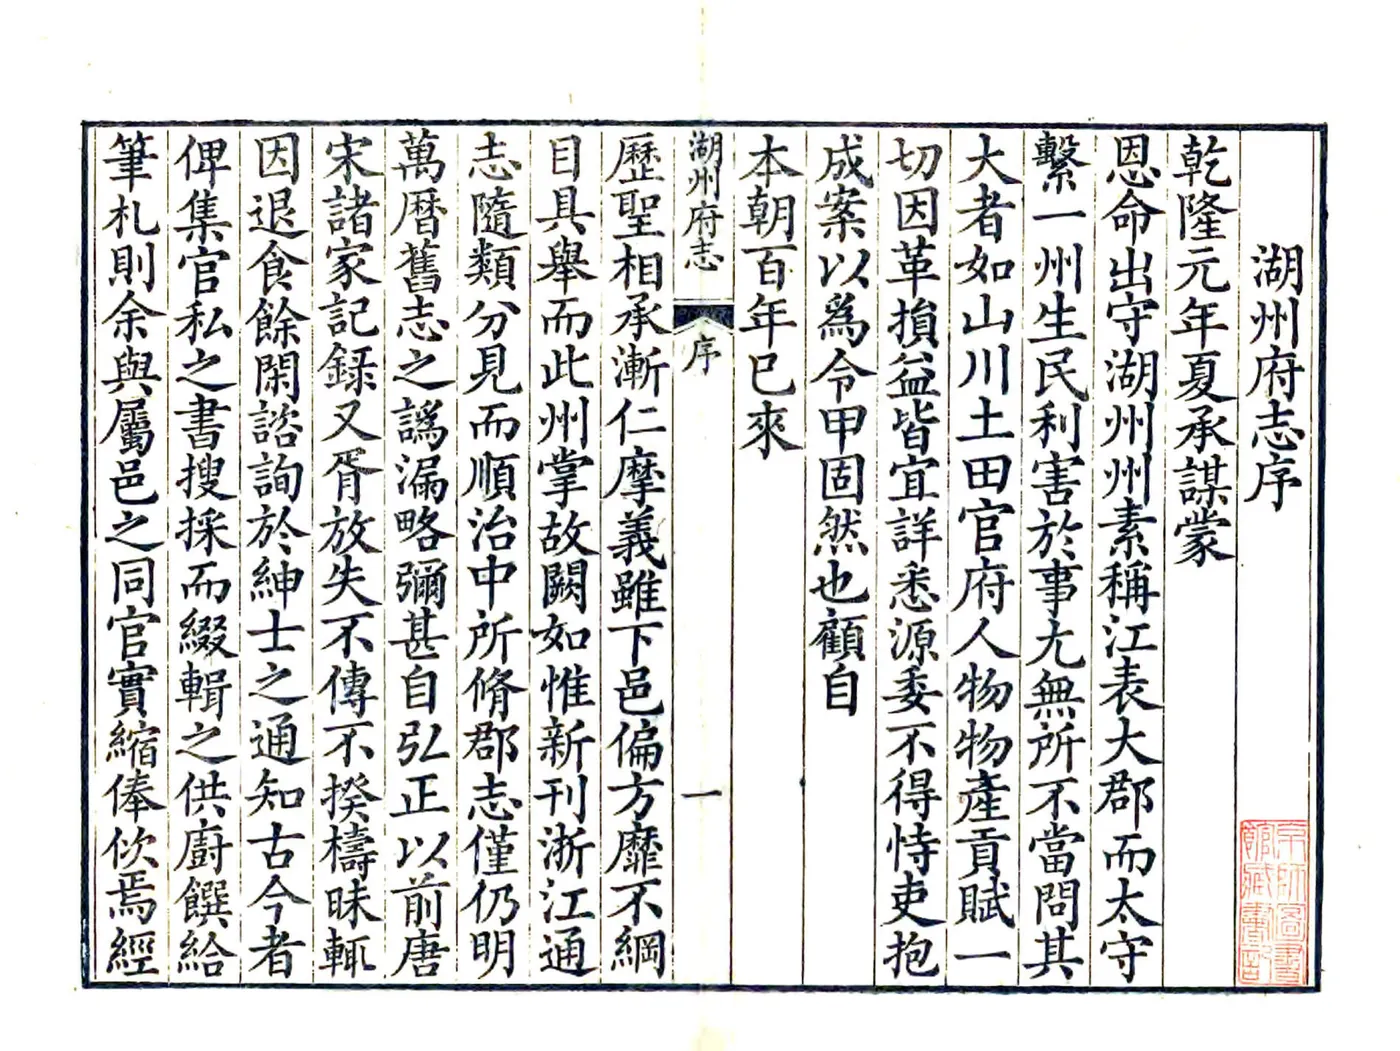 湖州府志序
乾隆元年夏承謀蒙
恩命出守湖州州素稱江表大郡而太守
繫一州生民利害於事尢無所不當問其
大者如山川土田官府人物物產貢賦一
切因革損益皆宜詳悉源委不得恃吏抱
成案以爲令甲固然也顧自
本朝百年已來
湖州府志
序
一
歷聖相承漸仁摩義雖下邑偏方靡不綱
目具舉而此州掌故闕如惟新刊浙江通
志隨類分見而順治中所脩郡志僅仍明
萬曆舊志之譌漏略彌甚自弘正以前唐
宋諸家記錄又胥放失不傳不揆檮昧輒
因退食餘閑諮詢於紳士之通知古今者
俾集官私之書搜採而綴輯之供廚饌給
筆札則余與屬邑之同官實縮俸佽焉經